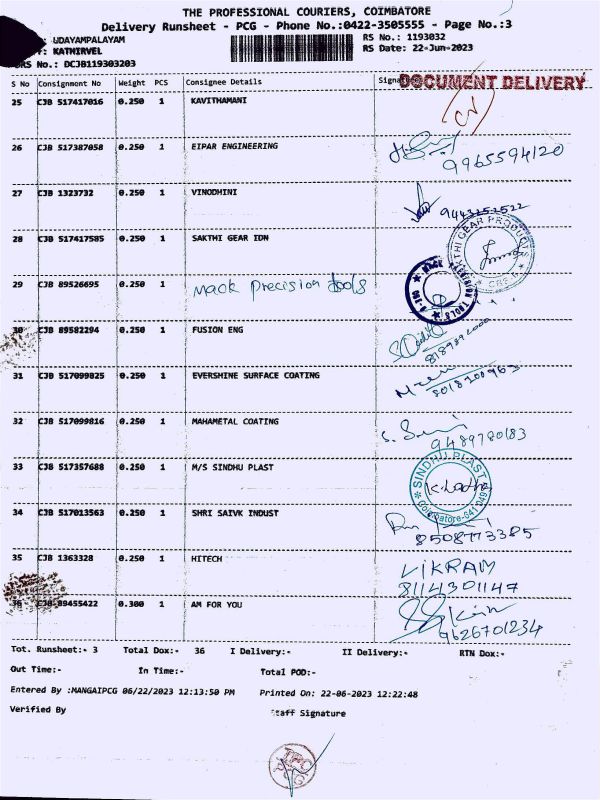 THE PROFESSIONAL COURIERS, COIMBATORE
Delivery Runsheet - PCG - Phone No.:0422-3505555 - Page No.:3
: UDAYAMPALAYAM
RS No.: 1193032
: KATHIRVEL
RS Date: 22-Jun-2023
DRS No.: DCJB119303203
S No Consignment No Weight PCS Consignee Details Signature
DOCUMENT DELIVERY
25 CJB 517417016 0.250 1 KAVITHAMANI
26 CJB 517387058 0.250 1 EIPAR ENGINEERING
9965594120
27 CJB 1323732 0.250 1 VINODHINI
9443252522
28 CJB 517417585 0.250 1 SAKTHI GEAR IDN
29 CJB 89526695 0.250 1 Mack Precision tools
30 CJB 89582294 0.250 1 FUSION ENG
31 CJB 517099825 0.250 1 EVERSHINE SURFACE COATING
32 CJB 517099816 0.250 1 MAHAMETAL COATING
9489780183
33 CJB 517357688 0.250 1 M/S SINDHU PLAST
SINDHU PLAST
34 CJB 517013563 0.250 1 SHRI SAIVK INDUST
35 CJB 1363328 0.250 1 HITECH
VIKRAM
8114301147
36 CJB 89455422 0.300 1 AM FOR YOU
9626701234
Tot. Runsheet:- 3 Total Dox:- 36 I Delivery:- II Delivery:- RTN Dox:-
Out Time:- In Time:- Total POD:-
Entered By :MANGAIPCG 06/22/2023 12:13:50 PM Printed On: 22-06-2023 12:22:48
Verified By Staff Signature